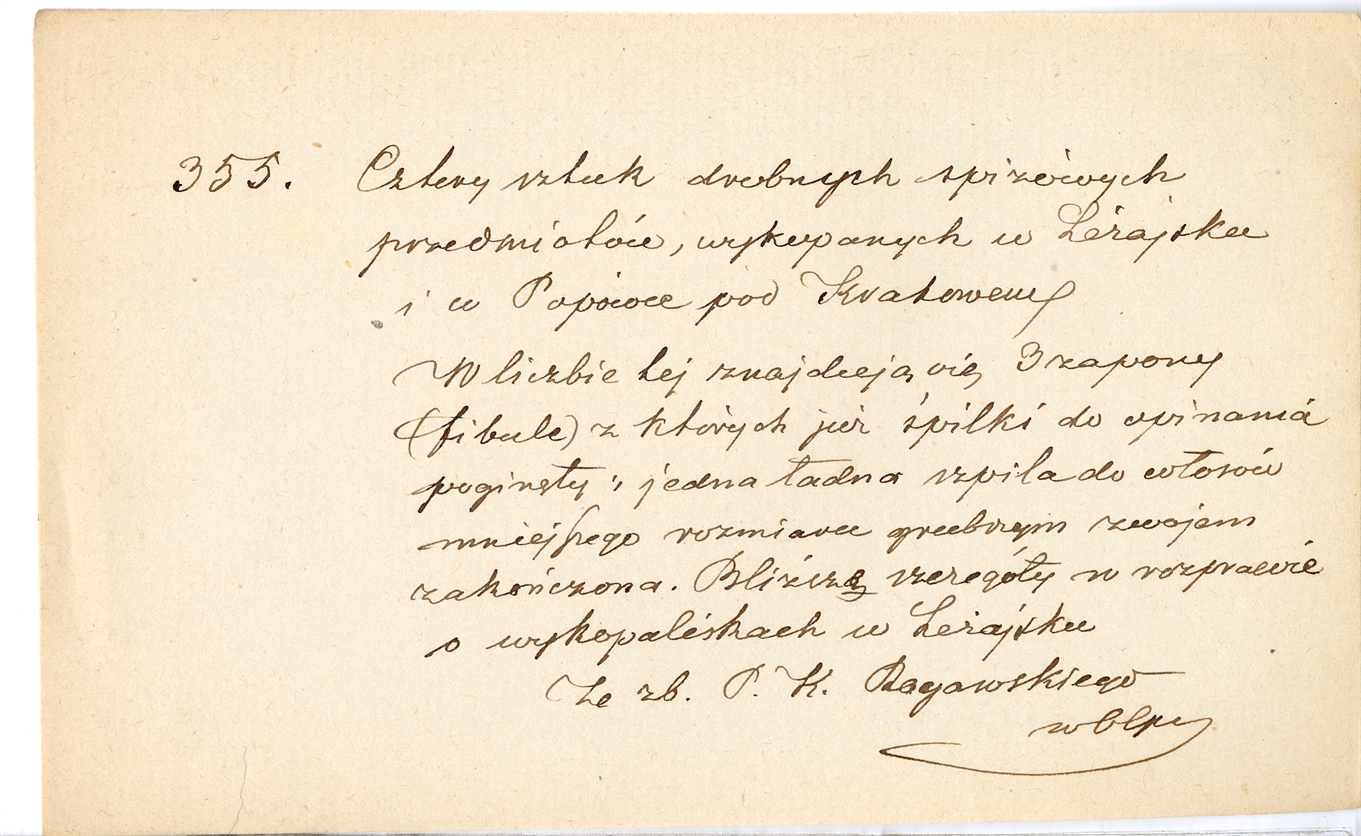 355. Cztery sztuk drobnych spiżowych
przedmiotów, wykopanych w Leżajsku
i w pod Krakowem
W liczbie tej znajdują się 3 zapony
(fibule) z których już śpilki do spinania
poginęły; jedna ładna szpila do włosów
mniejszego rozmiaru grubszym zwojem
zakończona. Bliższe szczegóły w rozprawie
o wykopaliskach w Leżajsku
Ze zb. P. K. Rogawskiego
w Ołpi